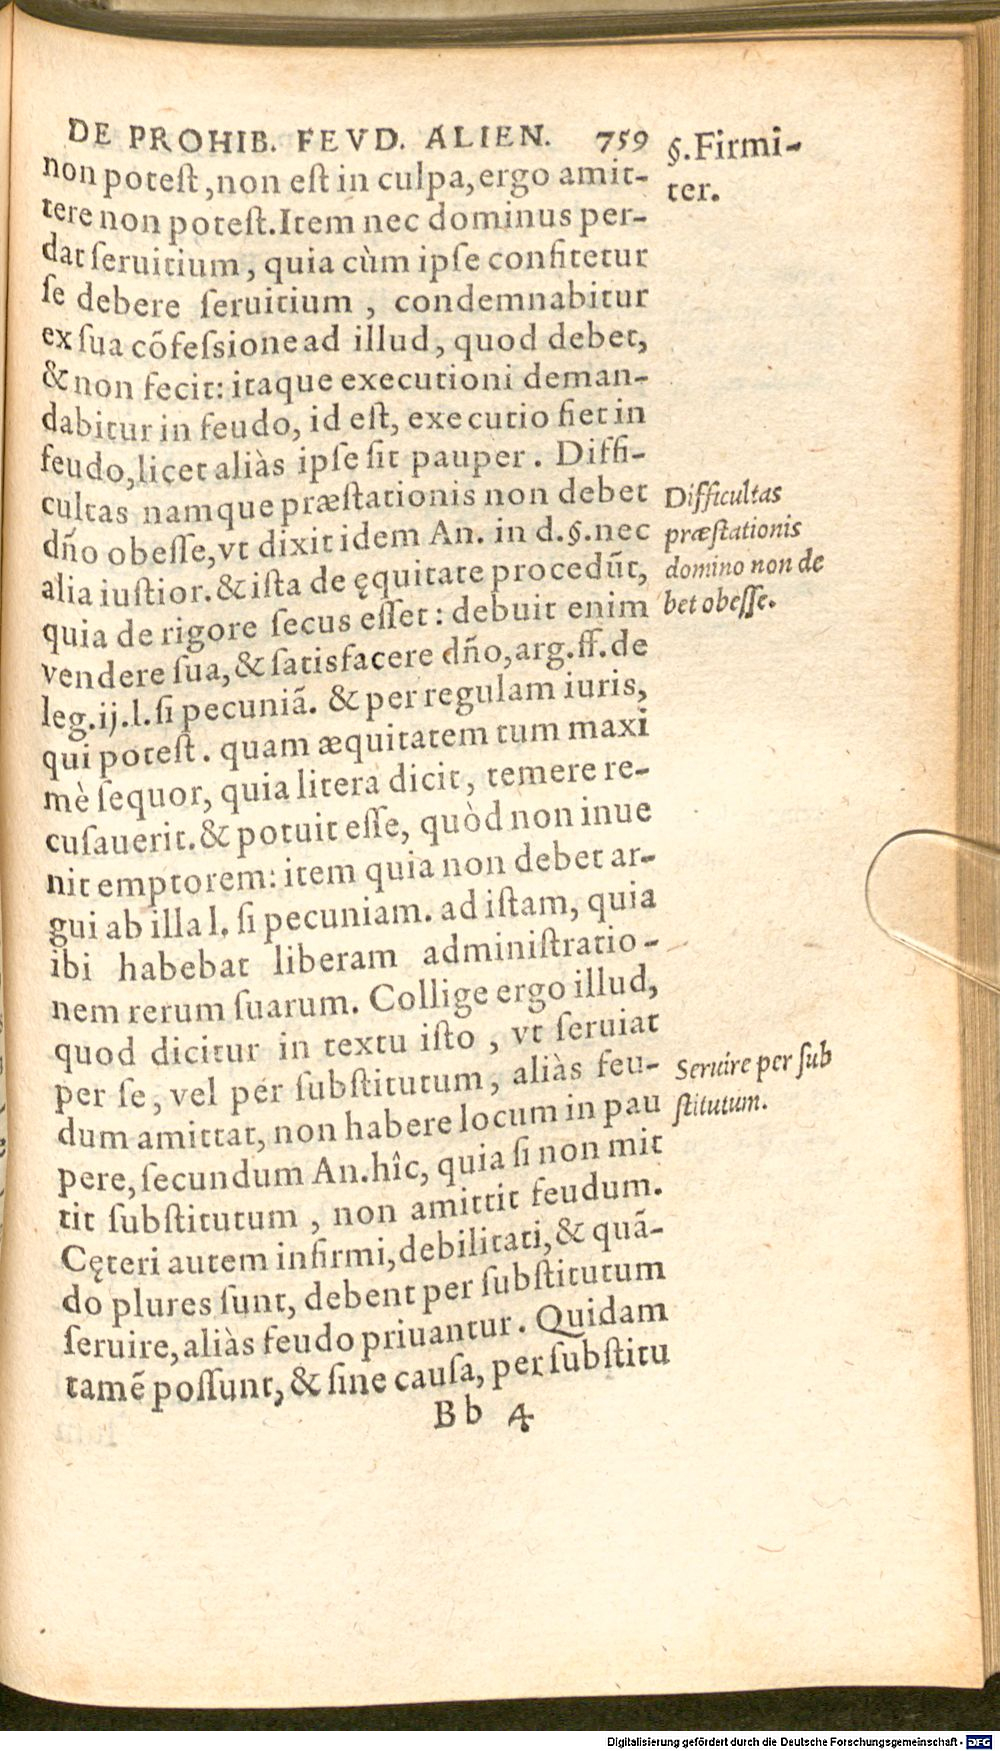 DE PROHIB. FEVD. ALIEN. 759
§.Firmi-
ter.
non poteſt, non eſt in culpa, ergo amit-
tere non poteſt. Item nec dominus per-
dat ſeruitium, quia cùm ipſe confitetur
ſe debere ſeruitium, condemnabitur
ex ſua cõfeſsione ad illud, quod debet,
& non fecit: itaque executioni deman-
dabitur in feudo, id eſt, executio fiet in
feudo, licet aliàs ipſe ſit pauper. Diffi-
cultas namque præſtationis non debet
dño obeſſe, vt dixit idem An. in d.§.nec
alia iuſtior. & iſta de ęquitate procedũt,
quia de rigore ſecus eſſet: debuit enim
vendere ſua, & ſatisfacere dño, arg.ff.de
leg.ij.l.ſi pecuniã. & per regulam iuris,
qui poteſt. quam æquitatem tum maxi
mè ſequor, quia litera dicit, temere re-
cuſauerit. & potuit eſſe, quòd non inue
nit emptorem: item quia non debet ar-
gui ab illa l. ſi pecuniam. ad iſtam, quia
ibi habebat liberam adminiſtratio-
nem rerum ſuarum. Collige ergo illud,
quod dicitur in textu iſto, vt ſeruiat
per ſe, vel per ſubſtitutum, aliàs feu-
dum amittat, non habere locum in pau
pere, ſecundum An.hîc, quia ſi non mit
tit ſubſtitutum, non amittit feudum.
Cęteri autem infirmi, debilitati, & quã-
do plures ſunt, debent per ſubſtitutum
ſeruire, aliàs feudo priuantur. Quidam
tamẽ poſſunt, & ſine cauſa, per ſubſtitu
Bb 4
Difficultas
præſtationis
domino non de
bet obeſſe.
Seruire per ſub
ſtitutum.
Digitalisierung gefördert durch die Deutsche Forschungsgemeinschaft - DFG